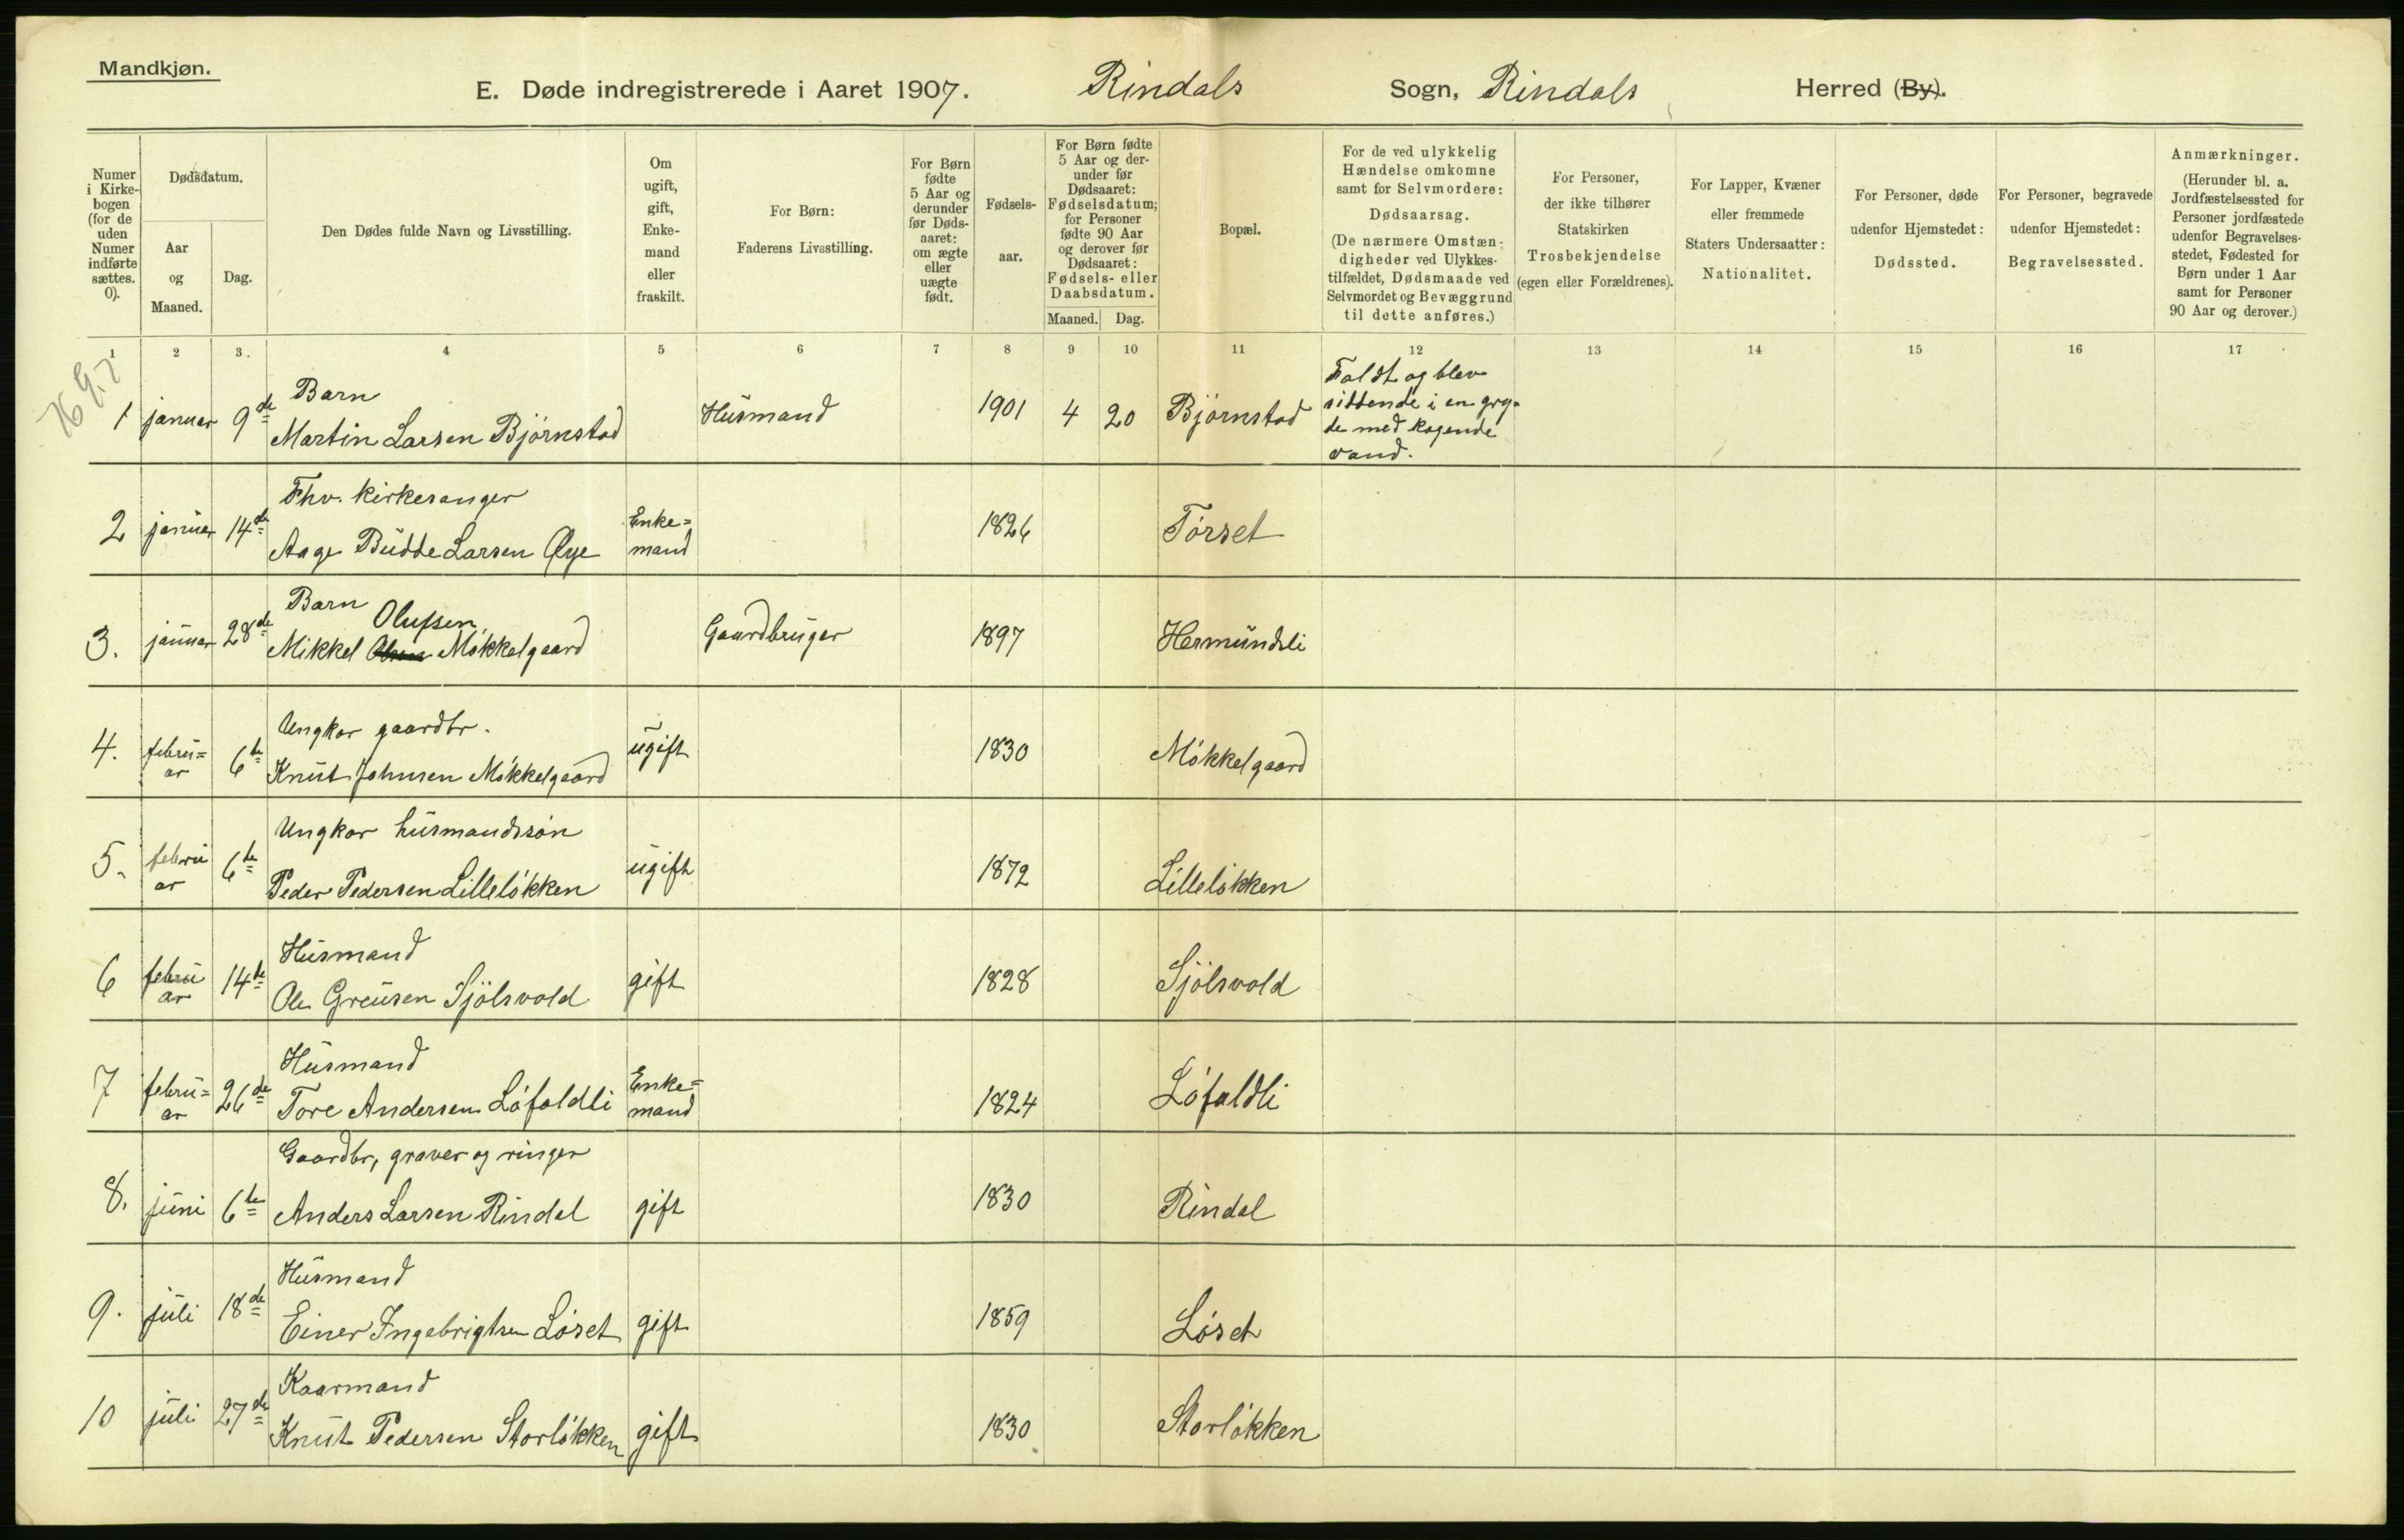 Mandkjøn.
E. Døde indregistrerede i Aaret 1907. Rindals Sogn, Rindals Herred (By).
Numer i Kirke-bogen (for de uden Numer indførte sættes. 0).
Dødsdatum.
Aar og Maaned.
Dag.
Den Dødes fulde Navn og Livsstilling.
Om ugift, gift, Enke-mand eller fraskilt.
For Børn: Faderens Livsstilling.
For Børn fødte 5 Aar og derunder før Døds-aaret: om ægte eller uægte født.
Fødsels-aar.
For Børn fødte 5 Aar og der-under før Dødsaaret: Fødselsdatum; for Personer fødte 90 Aar og derover før Dødsaaret: Fødsels- eller Daabsdatum.
Maaned. Dag.
Bopæl.
For de ved ulykkelig Hændelse omkomne samt for Selvmordere: Dødsaarsag. (De nærmere Omstæn-digheder ved Ulykkes-tilfældet, Dødsmaade ved Selvmordet og Bevæggrund til dette anføres.)
For Personer, der ikke tilhører Statskirken Trosbekjendelse (egen eller Forældrenes).
For Lapper, Kvæner eller fremmede Staters Undersaatter: Nationalitet.
For Personer, døde udenfor Hjemstedet: Dødssted.
For Personer, begravede udenfor Hjemstedet: Begravelsessted.
Anmærkninger. (Herunder bl. a. Jordfæstelsessted for Personer jordfæstede udenfor Begravelses-stedet, Fødested for Børn under 1 Aar samt for Personer 90 Aar og derover.)
1 2 3. 4 5 6 7 8 9 10 11 12 13 14 15 16 17
1 januar 9de Barn
Martin Larsen Bjørnstad Husmand 1901 4 20 Bjørnstad
Faldt og blev
siddende i en gry-
de med kogende
vand.
2 januar 14de Fhv. kirkesanger
Aage Budde Larsen Øye Enke=
mand 1826 Tørset
3. januar 28de Barn
Olufsen,
Mikkel Møkkelgaard Gaardbruger 1897 Hermundsli
4. febru=
ar 6te Ungkar gaardbr.
Knut Johnsen Møkkelgaard ugift 1830 Møkkelgaard
5. febru
ar 6te Ungkar husmandssøn
Peder Pedersen Lilleløkken ugift 1872 Lilleløkken
6 febru
ar 14de Husmand
Ole Greusen Sjølsvold gift 1828 Sjølsvold
7 febru=
ar 26de Husmand
Tore Andersen Løfaldli Enke=
mand 1824 Løfaldli
8. juni 6te Gaardbr, graver og ringer
Anders Larsen Rindal gift 1830 Rindal
9. juli 18de Husmand
Einer Ingebrigtsen Løset gift 1859 Løset
10 juli 27de Kaarmand
Knut Pedersen Storløkken gift 1830 Storløkken